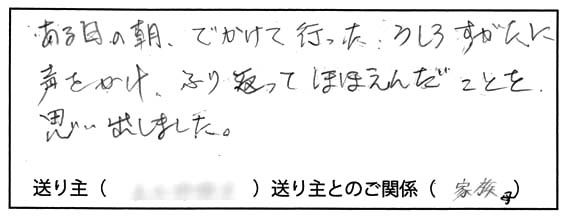 ある日の朝、でかけて行った、うしろすがたに
声をかけ、ふり返ってほほえんだことを
思い出しました。
送り主（　　　　）送り主とのご関係（ 家族 母 ）